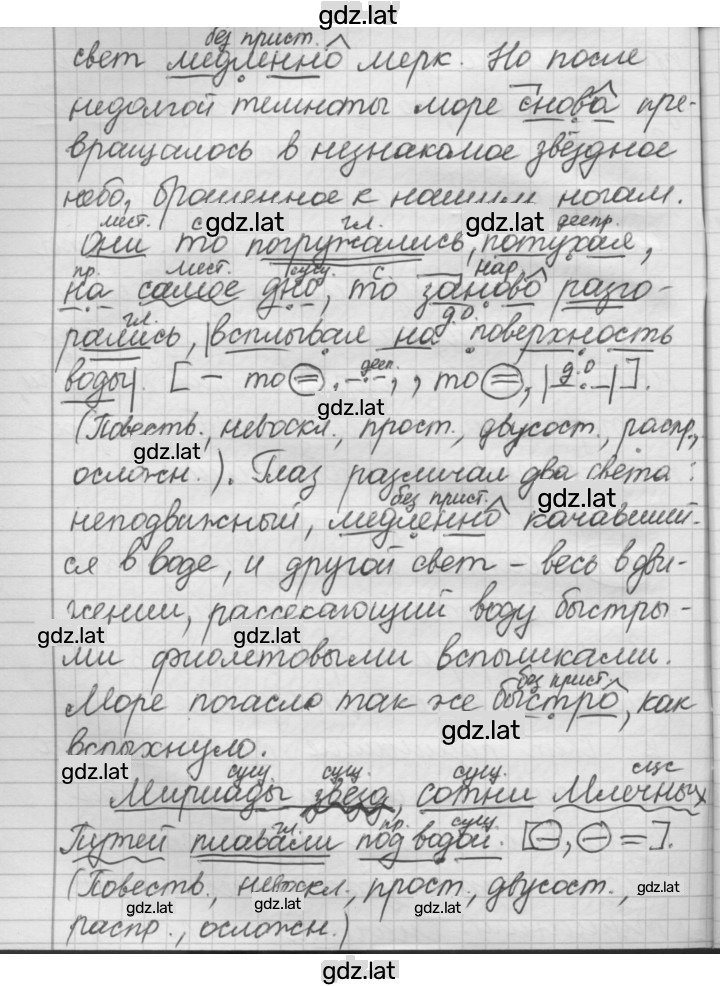 gdz.lat
без прист.
свет медленно мерк. Но после
недолгой темноты море снова пре-
вращалось в незнакомое звёздное
небо, брошенное к нашим ногам.
мест. с gdz.lat гл. gdz.lat деепр.
Они то погружались, потухая,
пр. мест. сущ. с нар.
на самое дно, то заново разго-
гл. gdz.lat д.о.
рались, |всплывая на поверхность
дееп. д.о
воды|. [— то =, -.-, , то =, |-.-|].
gdz.lat
(Повеств., невоскл., прост., двусост., распр.,
gdz.lat
осложн.). Глаз различал два света:
без прист. gdz.lat
неподвижный, медленно качавший-
ся в воде, и другой свет – весь в дви-
жении, рассекающий воду быстры-
gdz.lat gdz.lat
ми фиолетовыми вспышками.
без прист.
Море погасло так же быстро, как
gdz.lat
вспыхнуло.
gdz.lat сущ. сущ. сущ. сщс
Мириады звёзд, сотни Млечных
гл. пр. сущ.
Путей плавали под водой. [—, — =].
(Повеств., невоскл., прост., двусост.,
gdz.lat gdz.lat gdz.lat gdz.lat
распр., осложн.)
gdz.lat